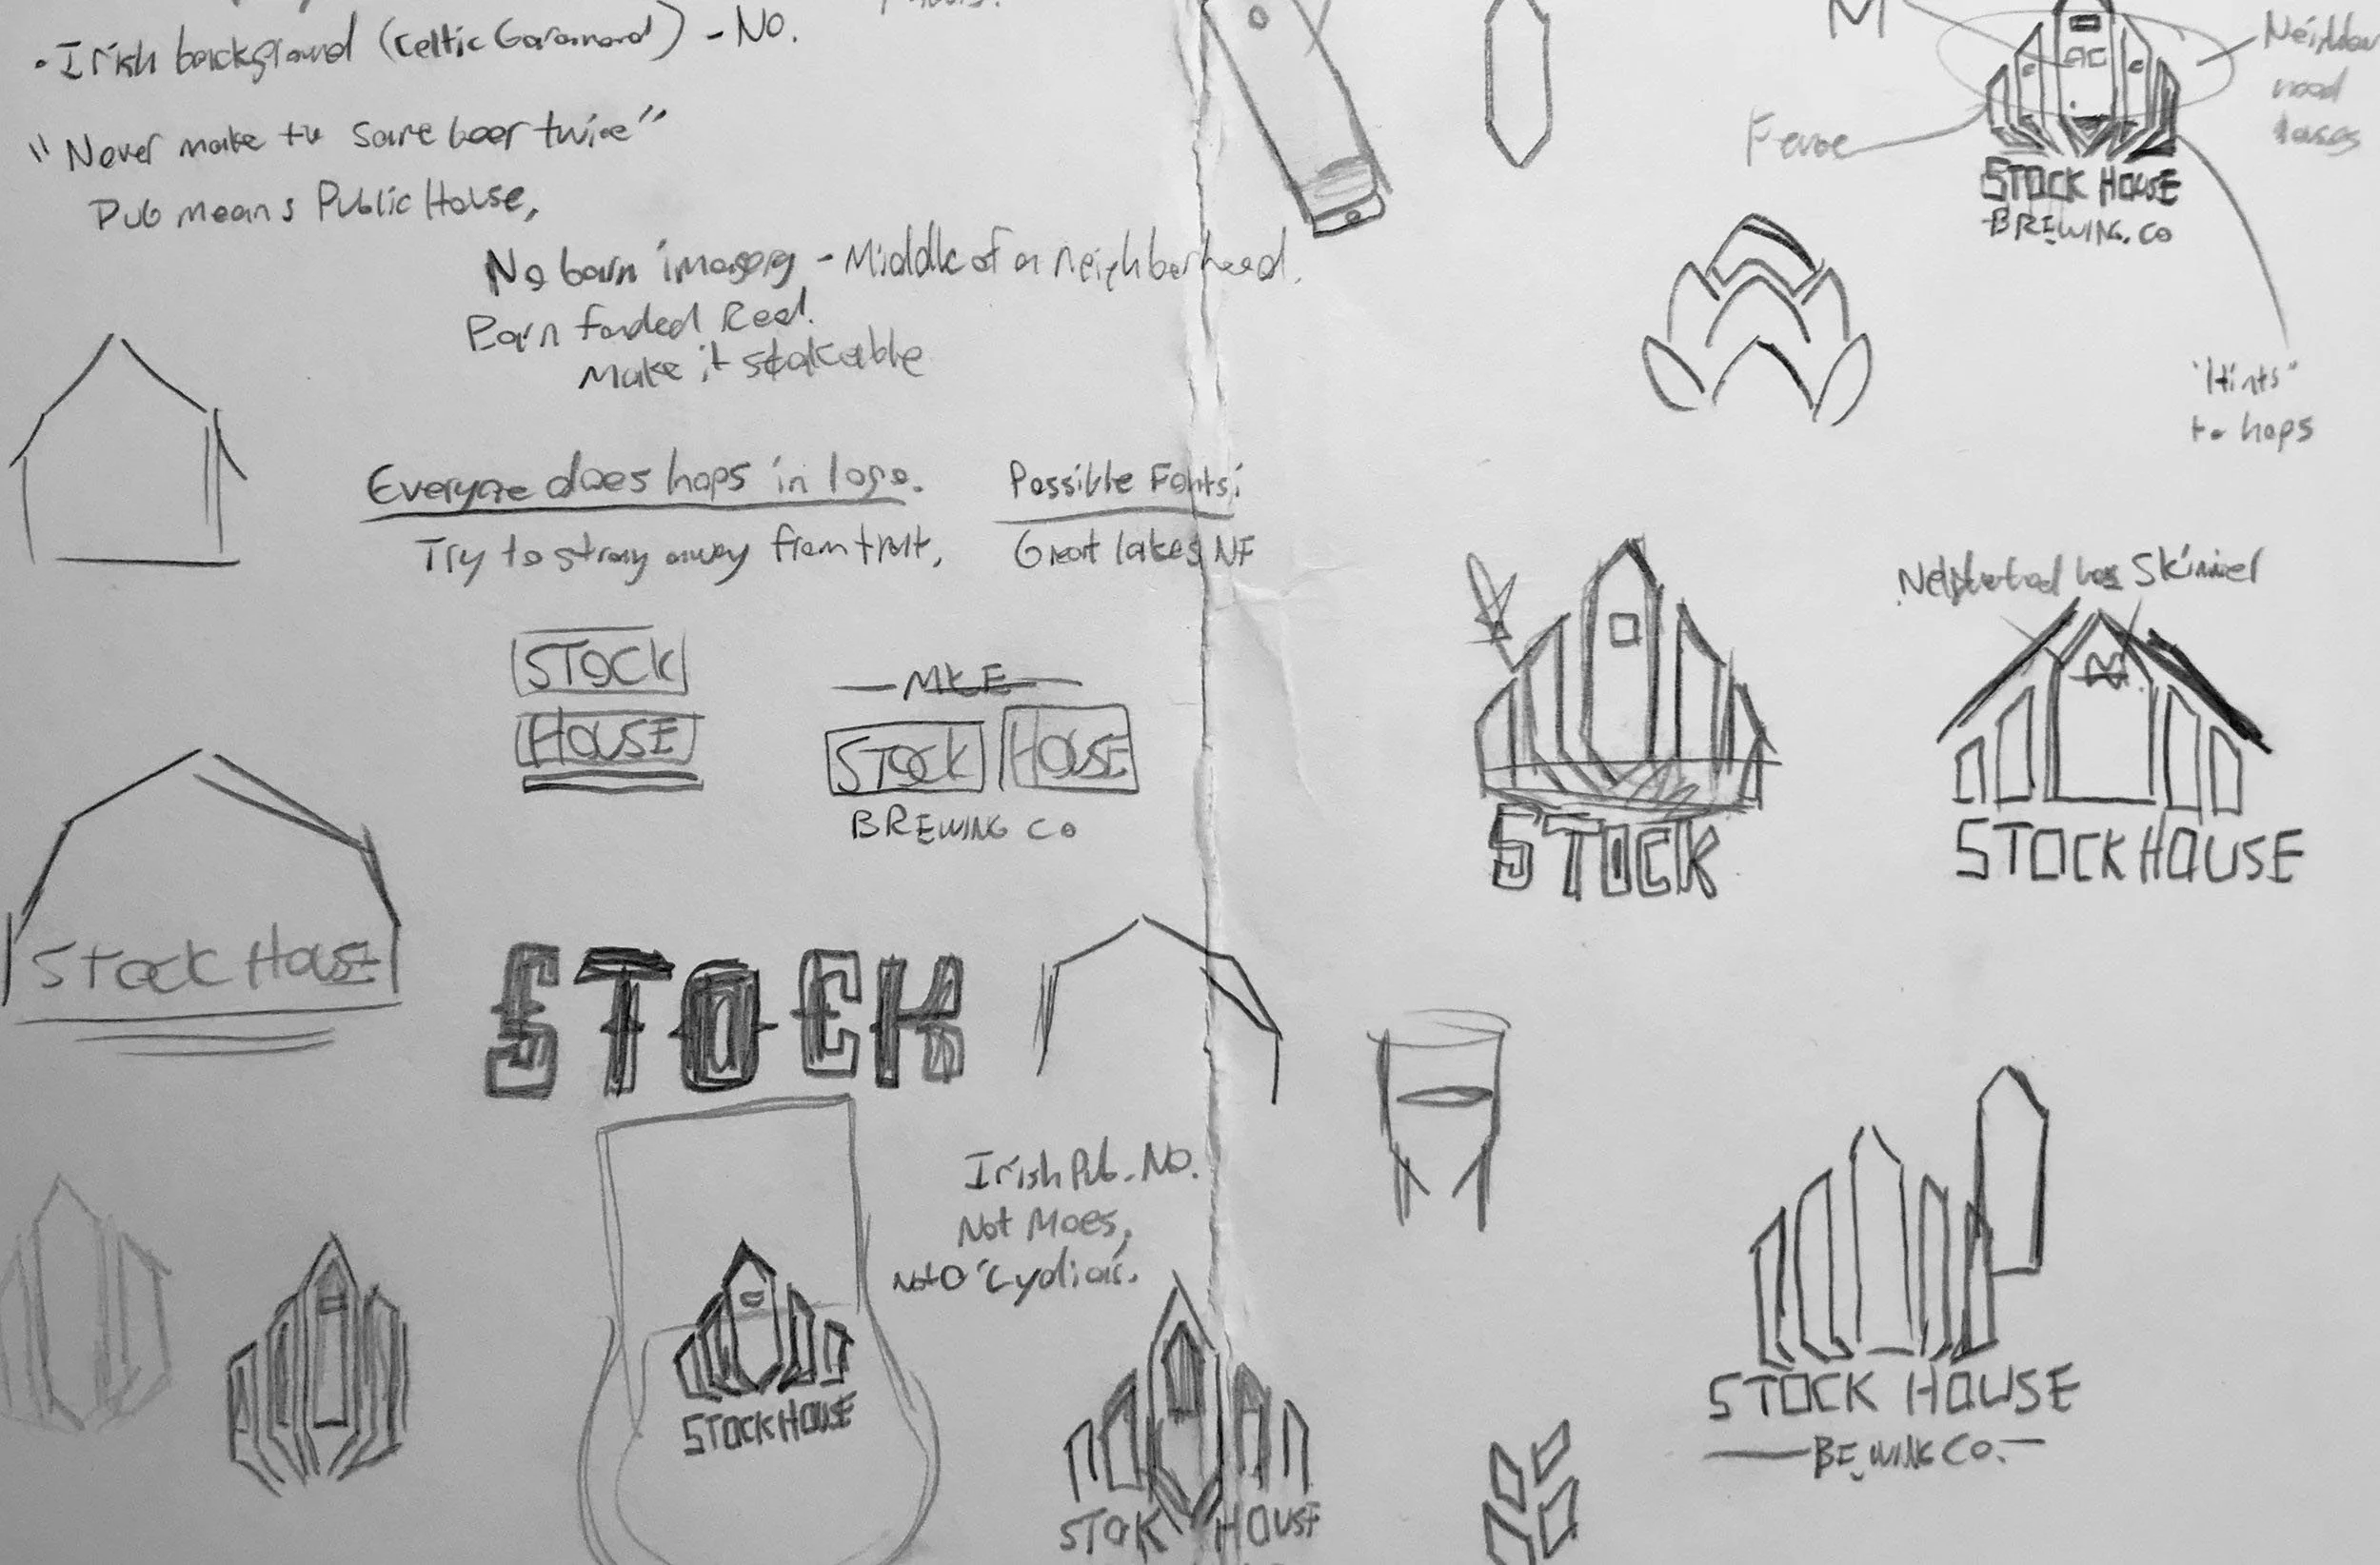 • Irish background (Celtic Garamond) - No.
"Never make the same beer twice"
Pub means Public House,
No barn imagery - Middle of a neighborhood.
Barn faded Red.
Make it stakable
Everyone does hops in logo.
Try to stray away from that.
Possible Fonts:
Great lakes NF
STOCK
HOUSE
MKE
STOCK HOUSE
BREWING CO
STOCK HOUSE
STOCK
Irish Pub - No.
Not Moes,
Not O'Lydia's.
STOCKHOUSE
STOK HOUSE
M
Neighbor
hood
Fence
STOCK HOUSE
BREWING.CO
"Hints"
to hops
Neighborhood has Skinnier
STOCK
STOCKHOUSE
STOCK HOUSE
BEWING CO.